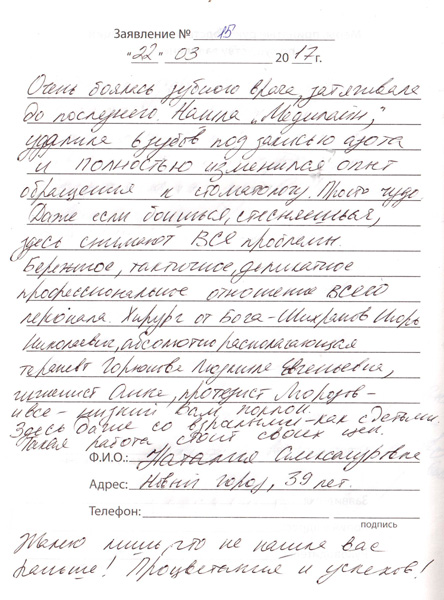 Заявление № 15
"22" 03 2017 г.
Очень боялась зубного врача, затягивала
до последнего. Нашла "Медилайн",
удалила 6 зубов под закисью азота
и полностью изменился опыт
обращения к стоматологу. Просто чудо
Даже если боишься, стесняешься,
здесь снимают ВСЕ проблемы.
Бережное, тактичное, деликатное
профессиональное отношение всего
персонала. Хирург от Бога - Игорь
Николаевич, абсолютно располагающая
терапевт Людмила Евгеньевна,
гигиенист протезист
и все - низкий Вам поклон.
Здесь даже со взрослыми - как с детьми.
Такая работа стоит своих цен.
Ф.И.О.: Наталия Александровна
Адрес: город, 39 лет.
Телефон:
подпись
Жалею лишь, что не нашла вас
раньше! Процветания и успехов!